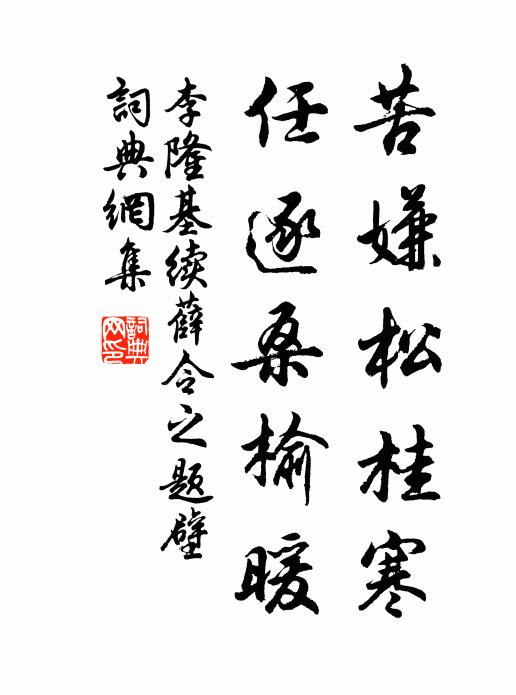 苦嫌松桂寒
任逐桑榆暖
李隆基续薛令之题壁
詞典網集
詞典网印